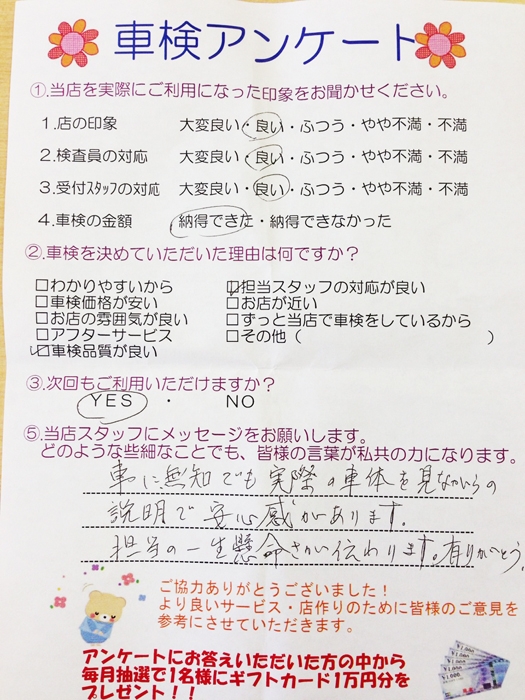 車検アンケート
①.当店を実際にご利用になった印象をお聞かせください。
1.店の印象 大変良い・良い・ふつう・やや不満・不満
2.検査員の対応 大変良い・良い・ふつう・やや不満・不満
3.受付スタッフの対応 大変良い・良い・ふつう・やや不満・不満
4.車検の金額 納得できた・納得できなかった
②.車検を決めていただいた理由は何ですか?
□わかりやすいから □担当スタッフの対応が良い
□車検価格が安い □お店が近い
□お店の雰囲気が良い □ずっと当店で車検をしているから
□アフターサービス □その他( )
□車検品質が良い
③.次回もご利用いただけますか?
YES ・ NO
⑤.当店スタッフにメッセージをお願いします。
どのような些細なことでも、皆様の言葉が私共の力になります。
車に無知でも実際の車体を見ながらの
説明で安心感があります。
担当の一生懸命さが伝わります。有りがとう。
ご協力ありがとうございました!
より良いサービス・店作りのために皆様のご意見を
参考にさせていただきます。
アンケートにお答えいただいた方の中から
毎月抽選で1名様にギフトカード1万円分を
プレゼント!!